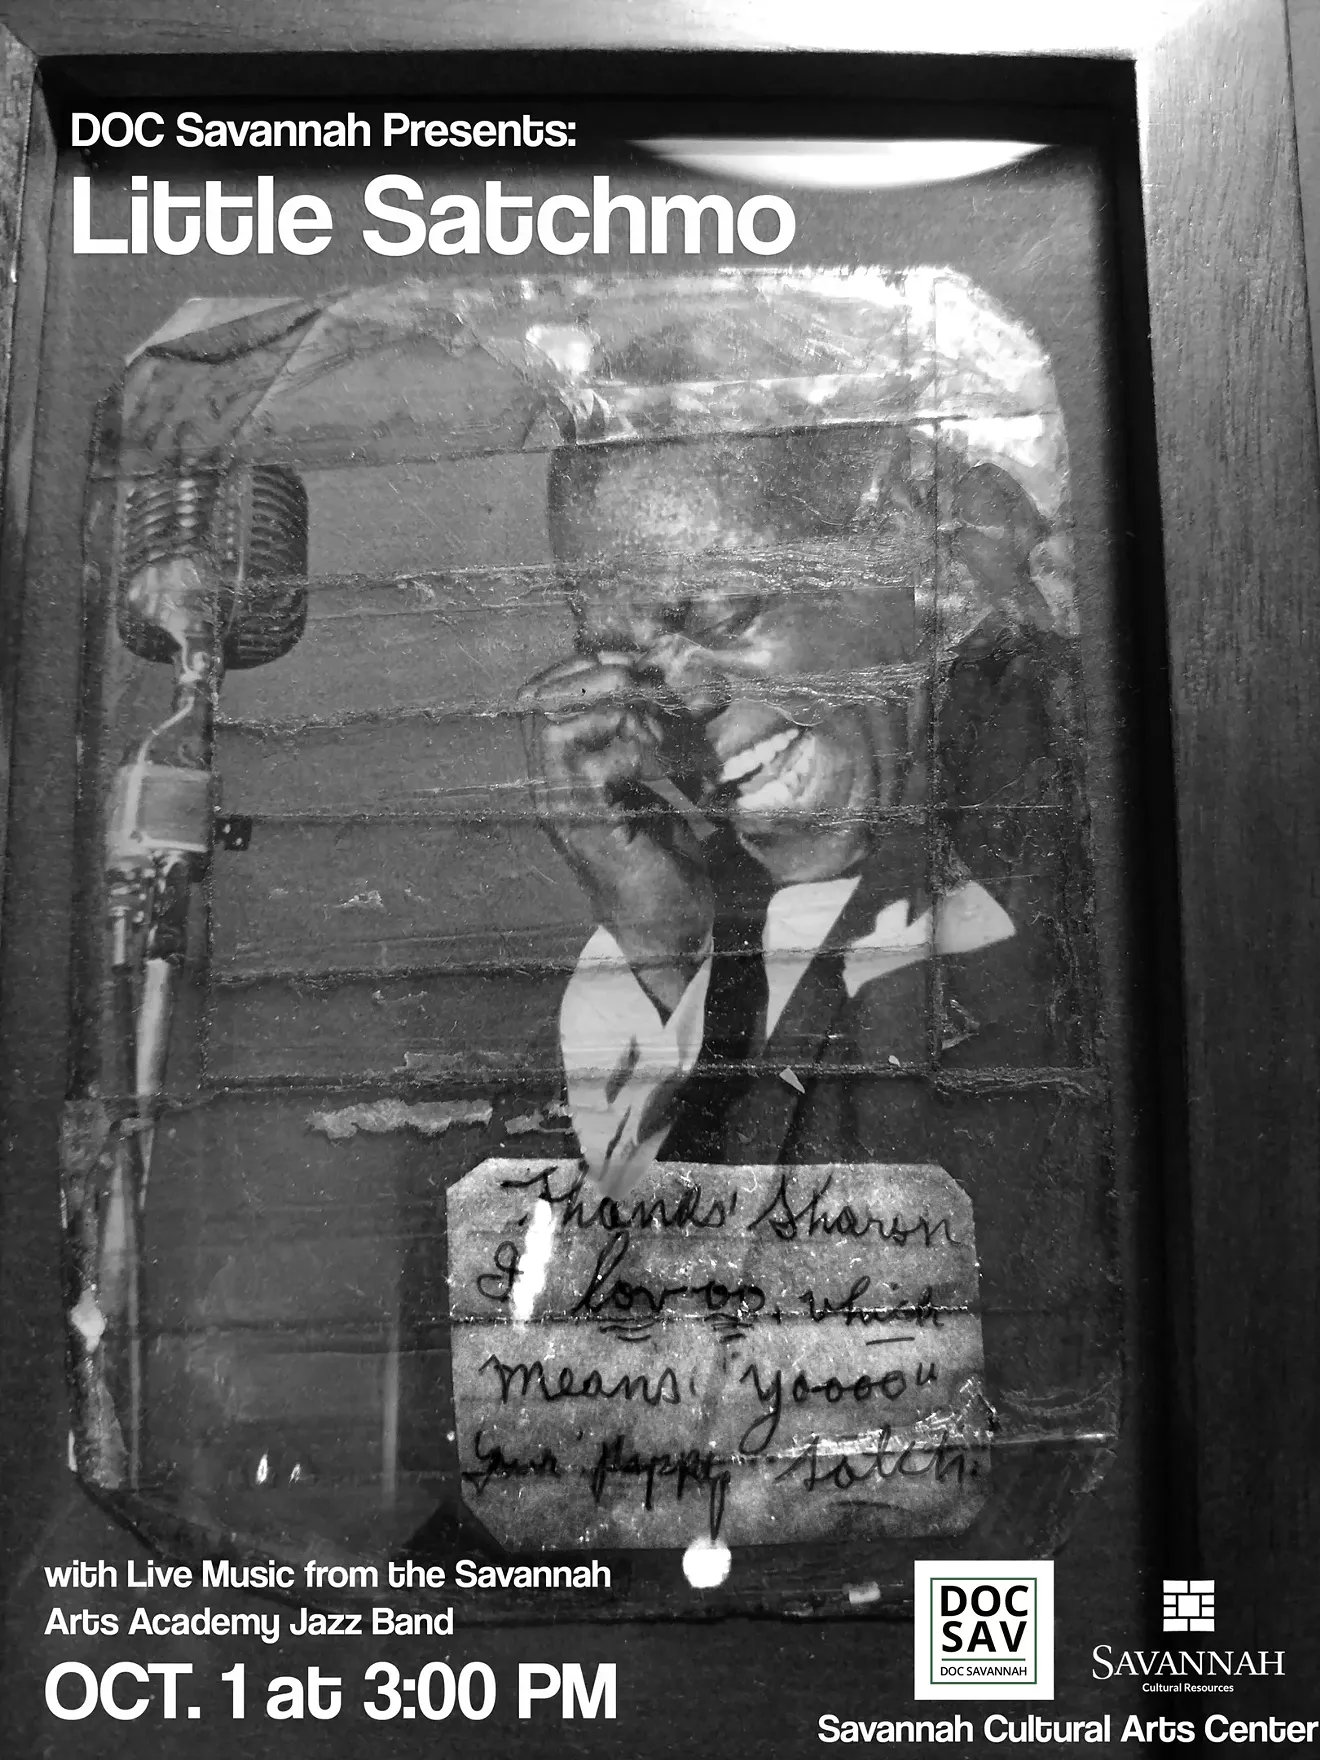 DOC Savannah Presents:
Little Satchmo
Thanks' Sharon
I lov-oo, which
means "yoooo"
your pappy satch.
with Live Music from the Savannah
Arts Academy Jazz Band
OCT. 1 at 3:00 PM
DOC
SAV
DOC SAVANNAH
SAVANNAH
Cultural Resources
Savannah Cultural Arts Center